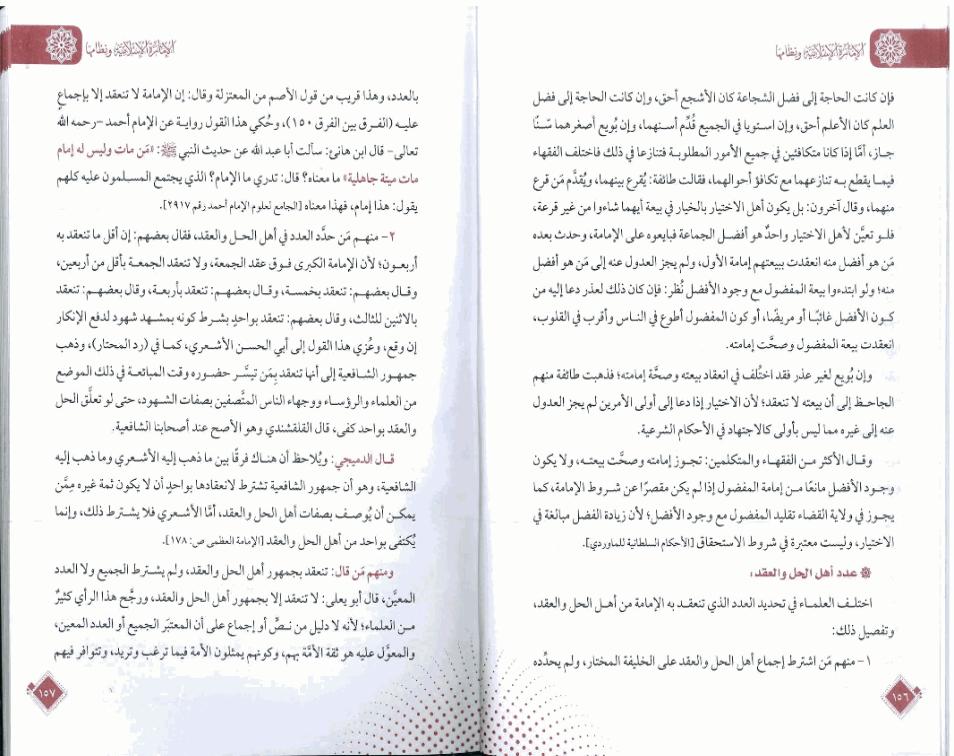 الإمارة الإسلامية ونظامها
فإن كانت الحاجة إلى فضل الشجاعة كان الأشجع أحق، وإن كانت الحاجة إلى فضل
العلم كان الأعلم أحق، وإن استويا في الجميع قُدِّم أسنهما، وإن بُويع أصغرهما سنًّا
جاز، أمَّا إذا كانا متكافئين في جميع الأمور المطلوبة فتنازعا في ذلك فاختلف الفقهاء
فيما يقطع به تنازعهما مع تكافؤ أحوالهما، فقالت طائفة: يُقرع بينهما، ويُقدَّم مَن قرع
منهما، وقال آخرون: بل يكون أهل الاختيار بالخيار في بيعة أيهما شاءوا من غير قرعة،
فلو تعيَّن لأهل الاختيار واحدٌ هو أفضل الجماعة فبايعوه على الإمامة، وحدث بعده
مَن هو أفضل منه انعقدت ببيعتهم إمامة الأول، ولم يجز العدول عنه إلى مَن هو أفضل
منه؛ ولو ابتدءوا بيعة المفضول مع وجود الأفضل نُظر: فإن كان ذلك لعذر دعا إليه من
كون الأفضل غائبًا أو مريضًا، أو كون المفضول أطوع في الناس وأقرب في القلوب،
انعقدت بيعة المفضول وصحَّت إمامته.
وإن بُويع لغير عذر فقد اختُلف في انعقاد بيعته وصحَّة إمامته؛ فذهبت طائفة منهم
الجاحظ إلى أن بيعته لا تنعقد؛ لأن الاختيار إذا دعا إلى أولى الأمرين لم يجز العدول
عنه إلى غيره مما ليس بأولى كالاجتهاد في الأحكام الشرعية.
وقال الأكثر من الفقهاء والمتكلمين: تجوز إمامته وصحَّت بيعته، ولا يكون
وجود الأفضل مانعًا من إمامة المفضول إذا لم يكن مقصرًا عن شروط الإمامة، كما
يجوز في ولاية القضاء تقليد المفضول مع وجود الأفضل؛ لأن زيادة الفضل مبالغة في
الاختيار، وليست معتبرة في شروط الاستحقاق [الأحكام السلطانية للماوردي].
عدد أهل الحل والعقد:
اختلف العلماء في تحديد العدد الذي تنعقد به الإمامة من أهل الحل والعقد،
وتفصيل ذلك:
١- منهم مَن اشترط إجماع أهل الحل والعقد على الخليفة المختار، ولم يحدِّده
١٥٦
الإمارة الإسلامية ونظامها
بالعدد، وهذا قريب من قول الأصم من المعتزلة وقال: إن الإمامة لا تنعقد إلا بإجماع
عليه (الفرق بين الفرق ١٥٠)، وحُكي هذا القول رواية عن الإمام أحمد -رحمه الله
تعالى- قال ابن هانئ: سألت أبا عبد الله عن حديث النبي ﷺ: «مَن مات وليس له إمام
مات ميتة جاهلية» ما معناه؟ قال: تدري ما الإمام؟ الذي يجتمع المسلمون عليه كلهم
يقول: هذا إمام، فهذا معناه [الجامع لعلوم الإمام أحمد رقم ٢٩١٧].
٢- منهم مَن حدَّد العدد في أهل الحل والعقد، فقال بعضهم: إن أقل ما تنعقد به
أربعون؛ لأن الإمامة الكبرى فوق عقد الجمعة، ولا تنعقد الجمعة بأقل من أربعين،
وقال بعضهم: تنعقد بخمسة، وقال بعضهم: تنعقد بأربعة، وقال بعضهم: تنعقد
بالاثنين للثالث، وقال بعضهم: تنعقد بواحدٍ بشرط كونه بمشهد شهود لدفع الإنكار
إن وقع، وعُزي هذا القول إلى أبي الحسن الأشعري، كما في (رد المحتار)، وذهب
جمهور الشافعية إلى أنها تنعقد بمَن تيسَّر حضوره وقت المبائعة في ذلك الموضع
من العلماء والرؤساء ووجهاء الناس المتَّصفين بصفات الشهود، حتى لو تعلَّق الحل
والعقد بواحد كفى، قال القلقشندي وهو الأصح عند أصحابنا الشافعية.
قال الدميجي: ويُلاحظ أن هناك فرقًا بين ما ذهب إليه الأشعري وما ذهب إليه
الشافعية، وهو أن جمهور الشافعية تشترط لانعقادها بواحدٍ أن لا يكون ثمة غيره مِمَّن
يمكن أن يُوصف بصفات أهل الحل والعقد، أمَّا الأشعري فلا يشترط ذلك، وإنما
يُكتفى بواحد من أهل الحل والعقد [الإمامة العظمى ص: ١٧٨].
ومنهم مَن قال: تنعقد بجمهور أهل الحل والعقد، ولم يشترط الجميع ولا العدد
المعيَّن، قال أبو يعلى: لا تنعقد إلا بجمهور أهل الحل والعقد، ورجَّح هذا الرأي كثيرٌ
من العلماء؛ لأنه لا دليل من نصٍّ أو إجماع على أن المعتبَر الجميع أو العدد المعين،
والمعوَّل عليه هو ثقة الأمَّة بهم، وكونهم يمثلون الأمة فيما ترغب وتريد، وتتوافر فيهم
١٥٧